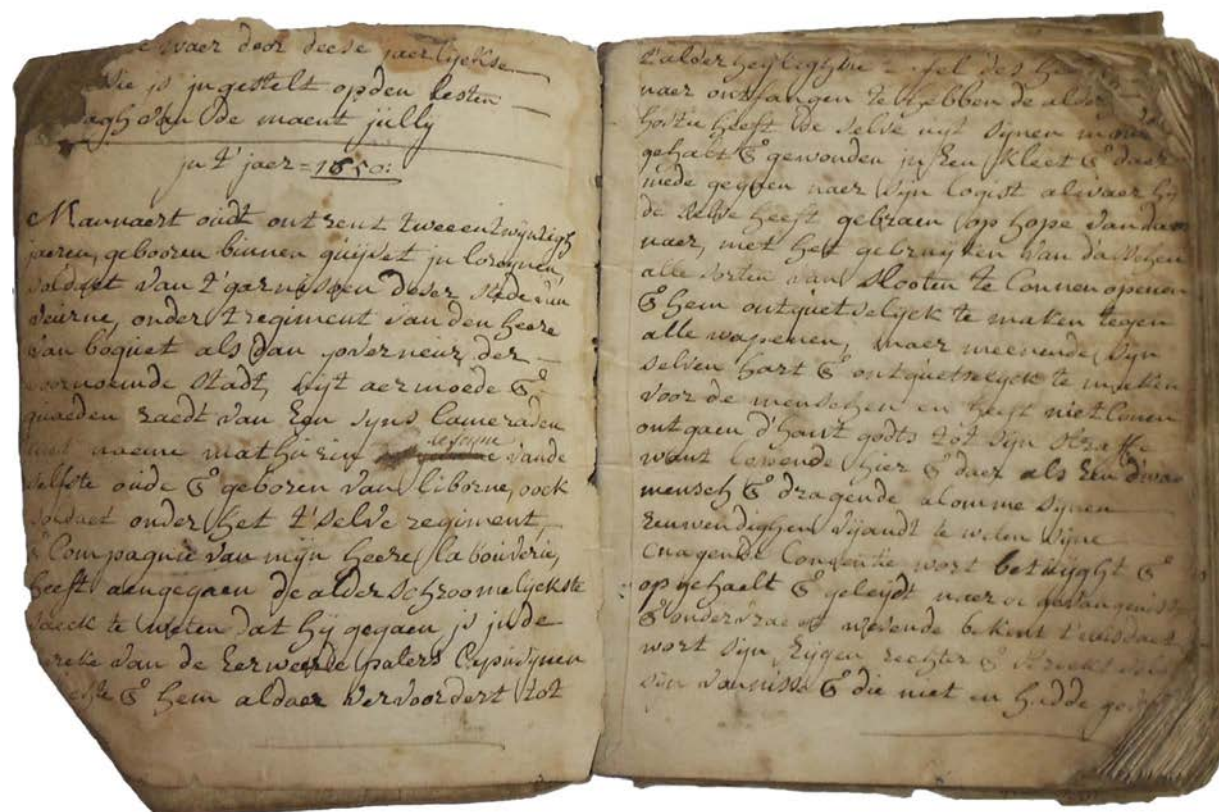 waer door deese jaerlyckse
is jngestelt op den lesten
dagh van de maent jully
jn t' jaer = 1650:
Mannaert oudt ontrent tweeentwijntigh
jaeren, geboren binnen quijvet jn loreynen,
soldaet van t' garnisoen deser stede van
veurne, onder t regiment van den heere
van boquet als dan governeur der
voornoemde stadt, uijt aermoede &
quaeden raedt van een syns Cameraden
met naeme mathurin lejeune vande
selfste oude & geboren van liborne, oock
soldaet onder het t' selve regiment,
& Compagnie van mijn heere la bouverie,
heeft aengegaen de alderschroomelyckste
saeck te weten dat hij gegaen js jn de
kercke van de eerweerde paters Capucijnen
& hem aldaer vervoordert tot
t' alderheylighste des
naer ontfangen te hebben de alder
hostie heeft de selve uijt sijnen mont
gehaelt & gewonden jn een kleet & daer
mede gegaen naer sijn logist alwaer hij
de selve heeft gebraen op hope van daer
naer, met het gebruijken van d'asschen
alle sorten van slooten te Connen openen
& hem onquetselyck te maken tegen
alle wapenen, maer meenende sijn
selven hart & ontquetselyck te maken
voor de menschen en heeft niet Connen
ontgaen d'hant godts tot sijn straffe
want loopende hier & daer als een dwaes
mensch & dragende alomme sijnen
eenwendighen vijandt te weten sijne
Cnagende Conscentie wort betijght &
opgehaelt & geleijdt naer de gevangenisse
& ondervraeght wesende bekent t' misdaet
wort sijn eijgen rechter & strickt
sijn vonnisse & die niet en hadde